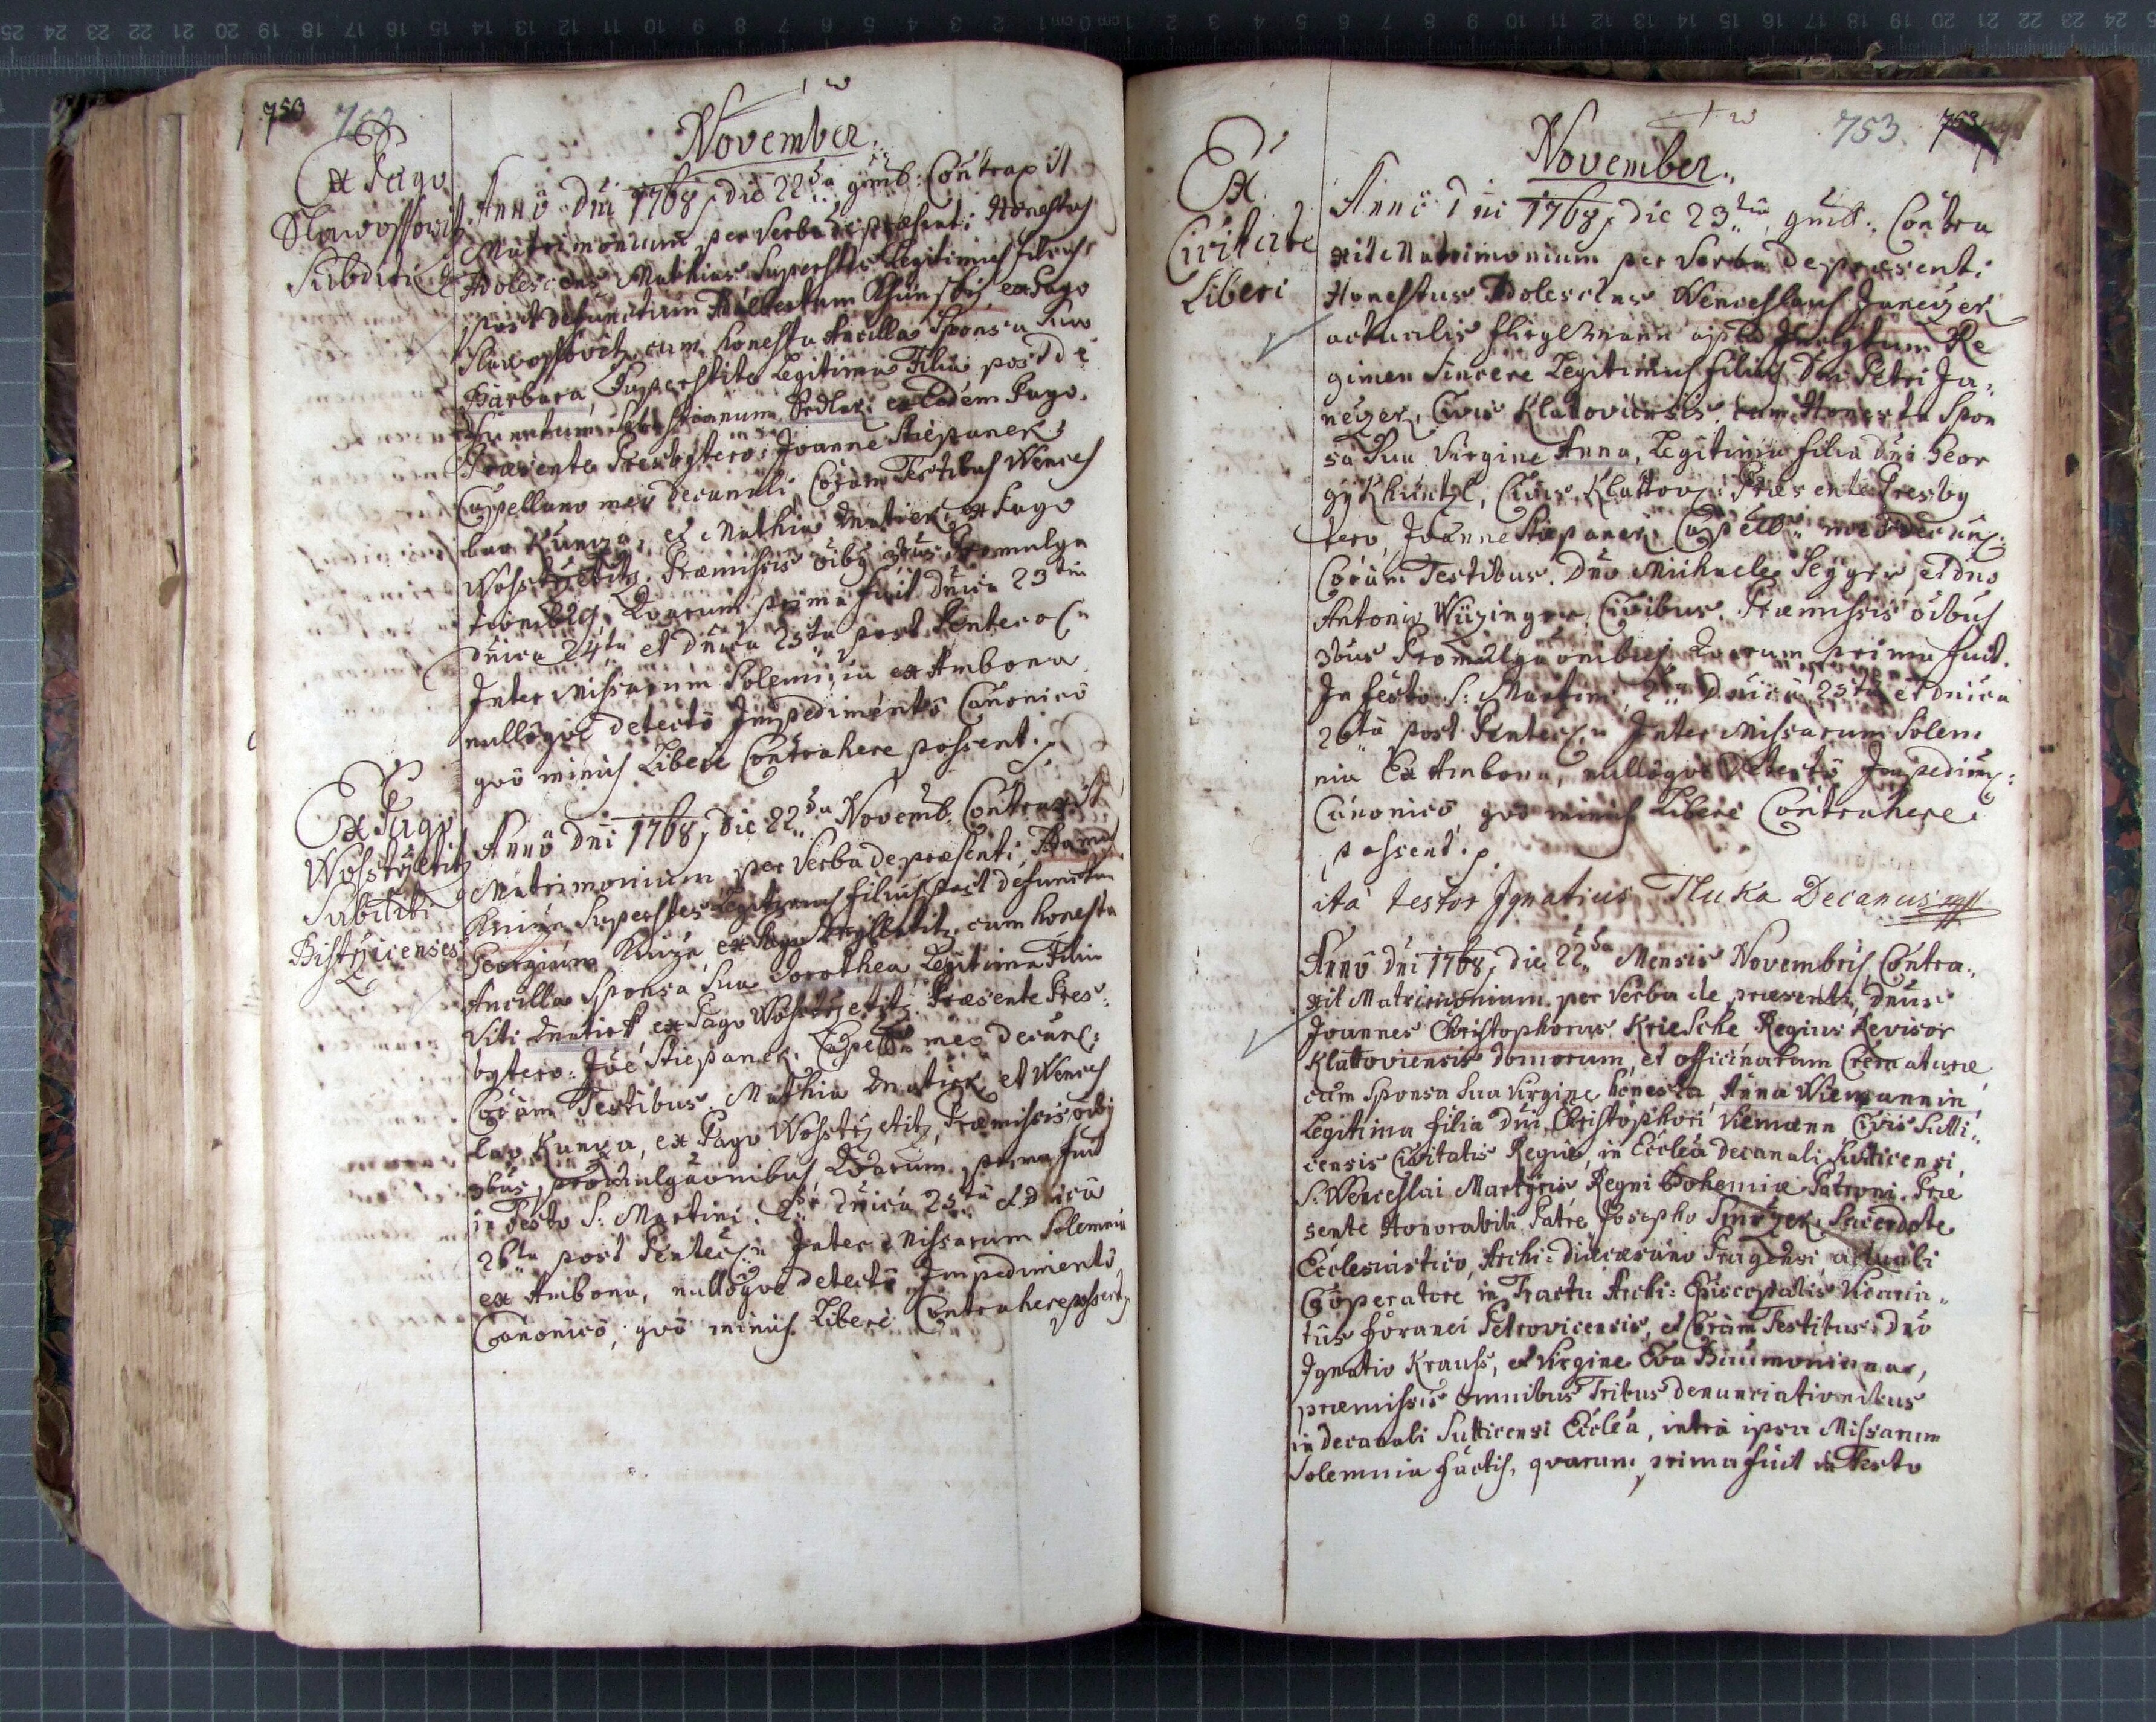 753
November.
Ex Pago
Slawossowitz
Subditi
Annô Dni 1768, die 22da 9mb: Contraxit
Matrimonium per Verba de præsenti Honestus
Adolescens Mathias Superstes Legitimus filius
post defunctum Adalbertum ex Pago
Slawossowitz, cum honesta Ancilla Sponsa Sua
Barbara, Superstite Legitima Filia post de
functum Sedlak ex Eodem Pago.
Præsente Presbytero: Joanne Stiepanek
Capellano meo Decanali Coram Testibus Wences
lao Kunza, et Mathia ex Pago
Wohstějetitz. Præmissis oibg 3bus Promulga
tionibg, Qvarum prima fuit Dnica 23tia
Dnica 24ta et Dnica 25ta post Pentecos
Inter Missarum Solemnia ex Ambona
nullôqve detectô Impedimentô Canonicô
qvô minus Liberè Contrahere possent.
Ex Pago
Wohstějetitz
Subditi
Bistřicenses
Annô Dni 1768, die 22da Novemb. Contraxit
Matrimonium per Verba de præsenti, Adamus
Superstes Legitimus filius post defunctum
Georgium ex Pago cum honesta
Ancilla Sponsa Sua Dorothea, Legitima Filia
Viti ex Pago Wohstějetitz. Præsente Pres:
bytero: Joe Stiepanek. Capello meo Decanl:
Coram Testibus Mathia et Wences
lao Kunza, ex Pago Wohstějetitz, Præmissis oibg
3bus promulgãonibus, Qvarum prima fuit
in Festo S: Martini. 2da Dnica 25ta et Dnica
26ta post Pentec: Inter Missarum Solemnia
ex Ambona, nullôqve detectô Impedimentô
Canonicô, qvô minus Liberè Contrahere possent
753. 753
November.
Ex
Civitate
Liberi
Annô Dni 1768, die 23tia 9mb:, Contra
xit Matrimonium per Verba de præsenti
Honestus Adolescens Wenceslaus Janeczek
actualis fliegl Mann apud Inclytum Re
gimen Sincere Legitimus filius Dni Petri Ja,
neczek, Civis Klatoviensis, cum Honesta Spon
sa Sua Virgine Anna, Legitima filia Dni Geor
gy Khüntzl, Civis Klattov: Præsente Presby
tero, Joanne Stiepanek, Capello meo Decanl:
Coram Testibus. Dno Michaele et Dno
Antonio Civibus. Præmissis oibus
3bus Promulgãonibus, Qvarum prima fuit.
In festo S: Martini, 2da Dnica 25ta et Dnica
26ta post Pentec: Inter Missarum Solem
nia Ex Ambona, nullôqve detectô Impedim:
Canonicô, qvô minus Liberè Contrahere
possent.
ità testor Ignatius Tluka Decanus mpp
Annô Dni 1768, die 22da Mensis Novembris, Contra:,
xit Matrimonium per Verba de præsenti, Dnus
Joannes Christophorus Kriesche Regius Revisor
Klattoviensis domorum, et officinarum Crematuræ
cum Sponsa Sua Virgine honesta Anna Wiemannin
Legitima filia Dni Christophori Viemann Civis Sutti:,
censis Civitatis Regiæ, in Eccleâ Decanali Sutticensi,
S: Wenceslai Martyris, Regni Bohemiæ Patroni Præ
sente Honorabili Patre Josepho Sacerdote
Ecclesiastico, Archi: Diæcesano Pragensi actuali
Cooperatore in Tractu Archi: Episcopalis Vicaria:,
tus foranei Petrovicensis, et Coram Testibus: Dno
Ignatio Krauss, et Virgine Eva
præmissis omnibus Tribus denunciationibus
in Decanali Sutticensi Eccleâ, intra ipsa Missarum
Solemnia factis, qvarum prima fuit in Festo